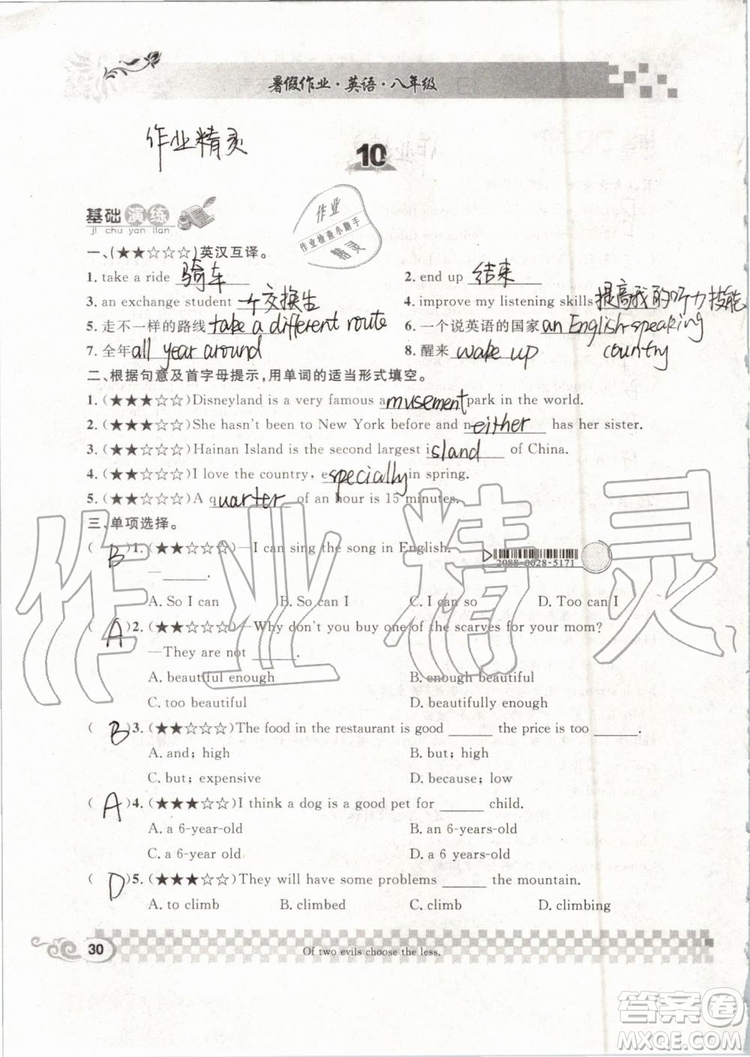 暑假作业·英语·八年级
作业精灵
10
作业
作业检查小助手
精灵
基础演练
ji chu yan lian
一、(★★☆☆☆)英汉互译。
1. take a ride 骑车 2. end up 结束
3. an exchange student 一个交换生 4. improve my listening skills 提高我的听力技能
5. 走不一样的路线 take a different route 6. 一个说英语的国家 an English-speaking country
7. 全年 all year around 8. 醒来 wake up
二、根据句意及首字母提示,用单词的适当形式填空。
1. (★★★☆☆)Disneyland is a very famous amusement park in the world.
2. (★★★☆☆)She hasn't been to New York before and neither has her sister.
3. (★★★☆☆)Hainan Island is the second largest island of China.
4. (★★★☆☆)I love the country, especially in spring.
5. (★★☆☆☆)A quarter of an hour is 15 minutes.
三、单项选择。
( B )1. (★★☆☆☆)—I can sing the song in English.
— ____.
A. So I can B. So can I C. I can so D. Too can I
2088-0028-5171
( A )2. (★★★☆☆)—Why don't you buy one of the scarves for your mom?
—They are not ____.
A. beautiful enough B. enough beautiful
C. too beautiful D. beautifully enough
( B )3. (★★☆☆☆)The food in the restaurant is good ____ the price is too ____.
A. and; high B. but; high
C. but; expensive D. because; low
( A )4. (★★★☆☆)I think a dog is a good pet for ____ child.
A. a 6-year-old B. an 6-year-old
C. a 6-years-old D. a 6 year old
( D )5. (★★★☆☆)They will have some problems ____ the mountain.
A. to climb B. climbed C. climb D. climbing
30
Of two evils choose the less.
作业精灵
答案卷
MXQE.COM